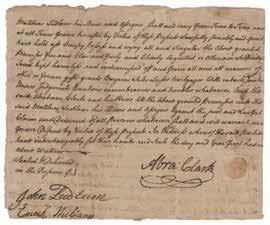 Matthias Ludlum his Heirs and Assigns shall and may from Time to Time and
at all Times forever hereafter by Virtue of these Presents Lawfully peaceably and
have hold use Occupy possess and enjoy all and Singular the above granted
Premises free and Clear and freely and Clearly acquitted or otherwise
kept harmless and indemnified of and from all and all manner
of former gifts grants Bargains Sales Leases Mortgages Wills
Judgments Executions incumbrances and troubles whatsoever. And the
said Abraham Clark and his Heirs the above granted Premises unto the
said Matthias Ludlum his Heirs and Assigns against the just and Lawful
Claims and Demands of all Persons whatsoever shall and will warrant and
forever Defend by Virtue of these Presents. In Witness whereof the said parties
have interchangeably set their hands and Seals the day and year first
above Written
Sealed & Delivered
in the Presence of
Abra Clark
John Ludlum
Enoch Williams